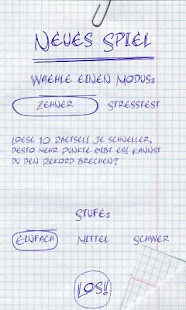 NEUES SPIEL
WAEHLE EINEN MODUS:
ZEHNER STRESSTEST
LOESE 10 RAETSEL! JE SCHNELLER,
DESTO MEHR PUNKTE GIBT ES! KANNST
DU DEN REKORD BRECHEN?
STUFE:
EINFACH MITTEL SCHWER
LOS!